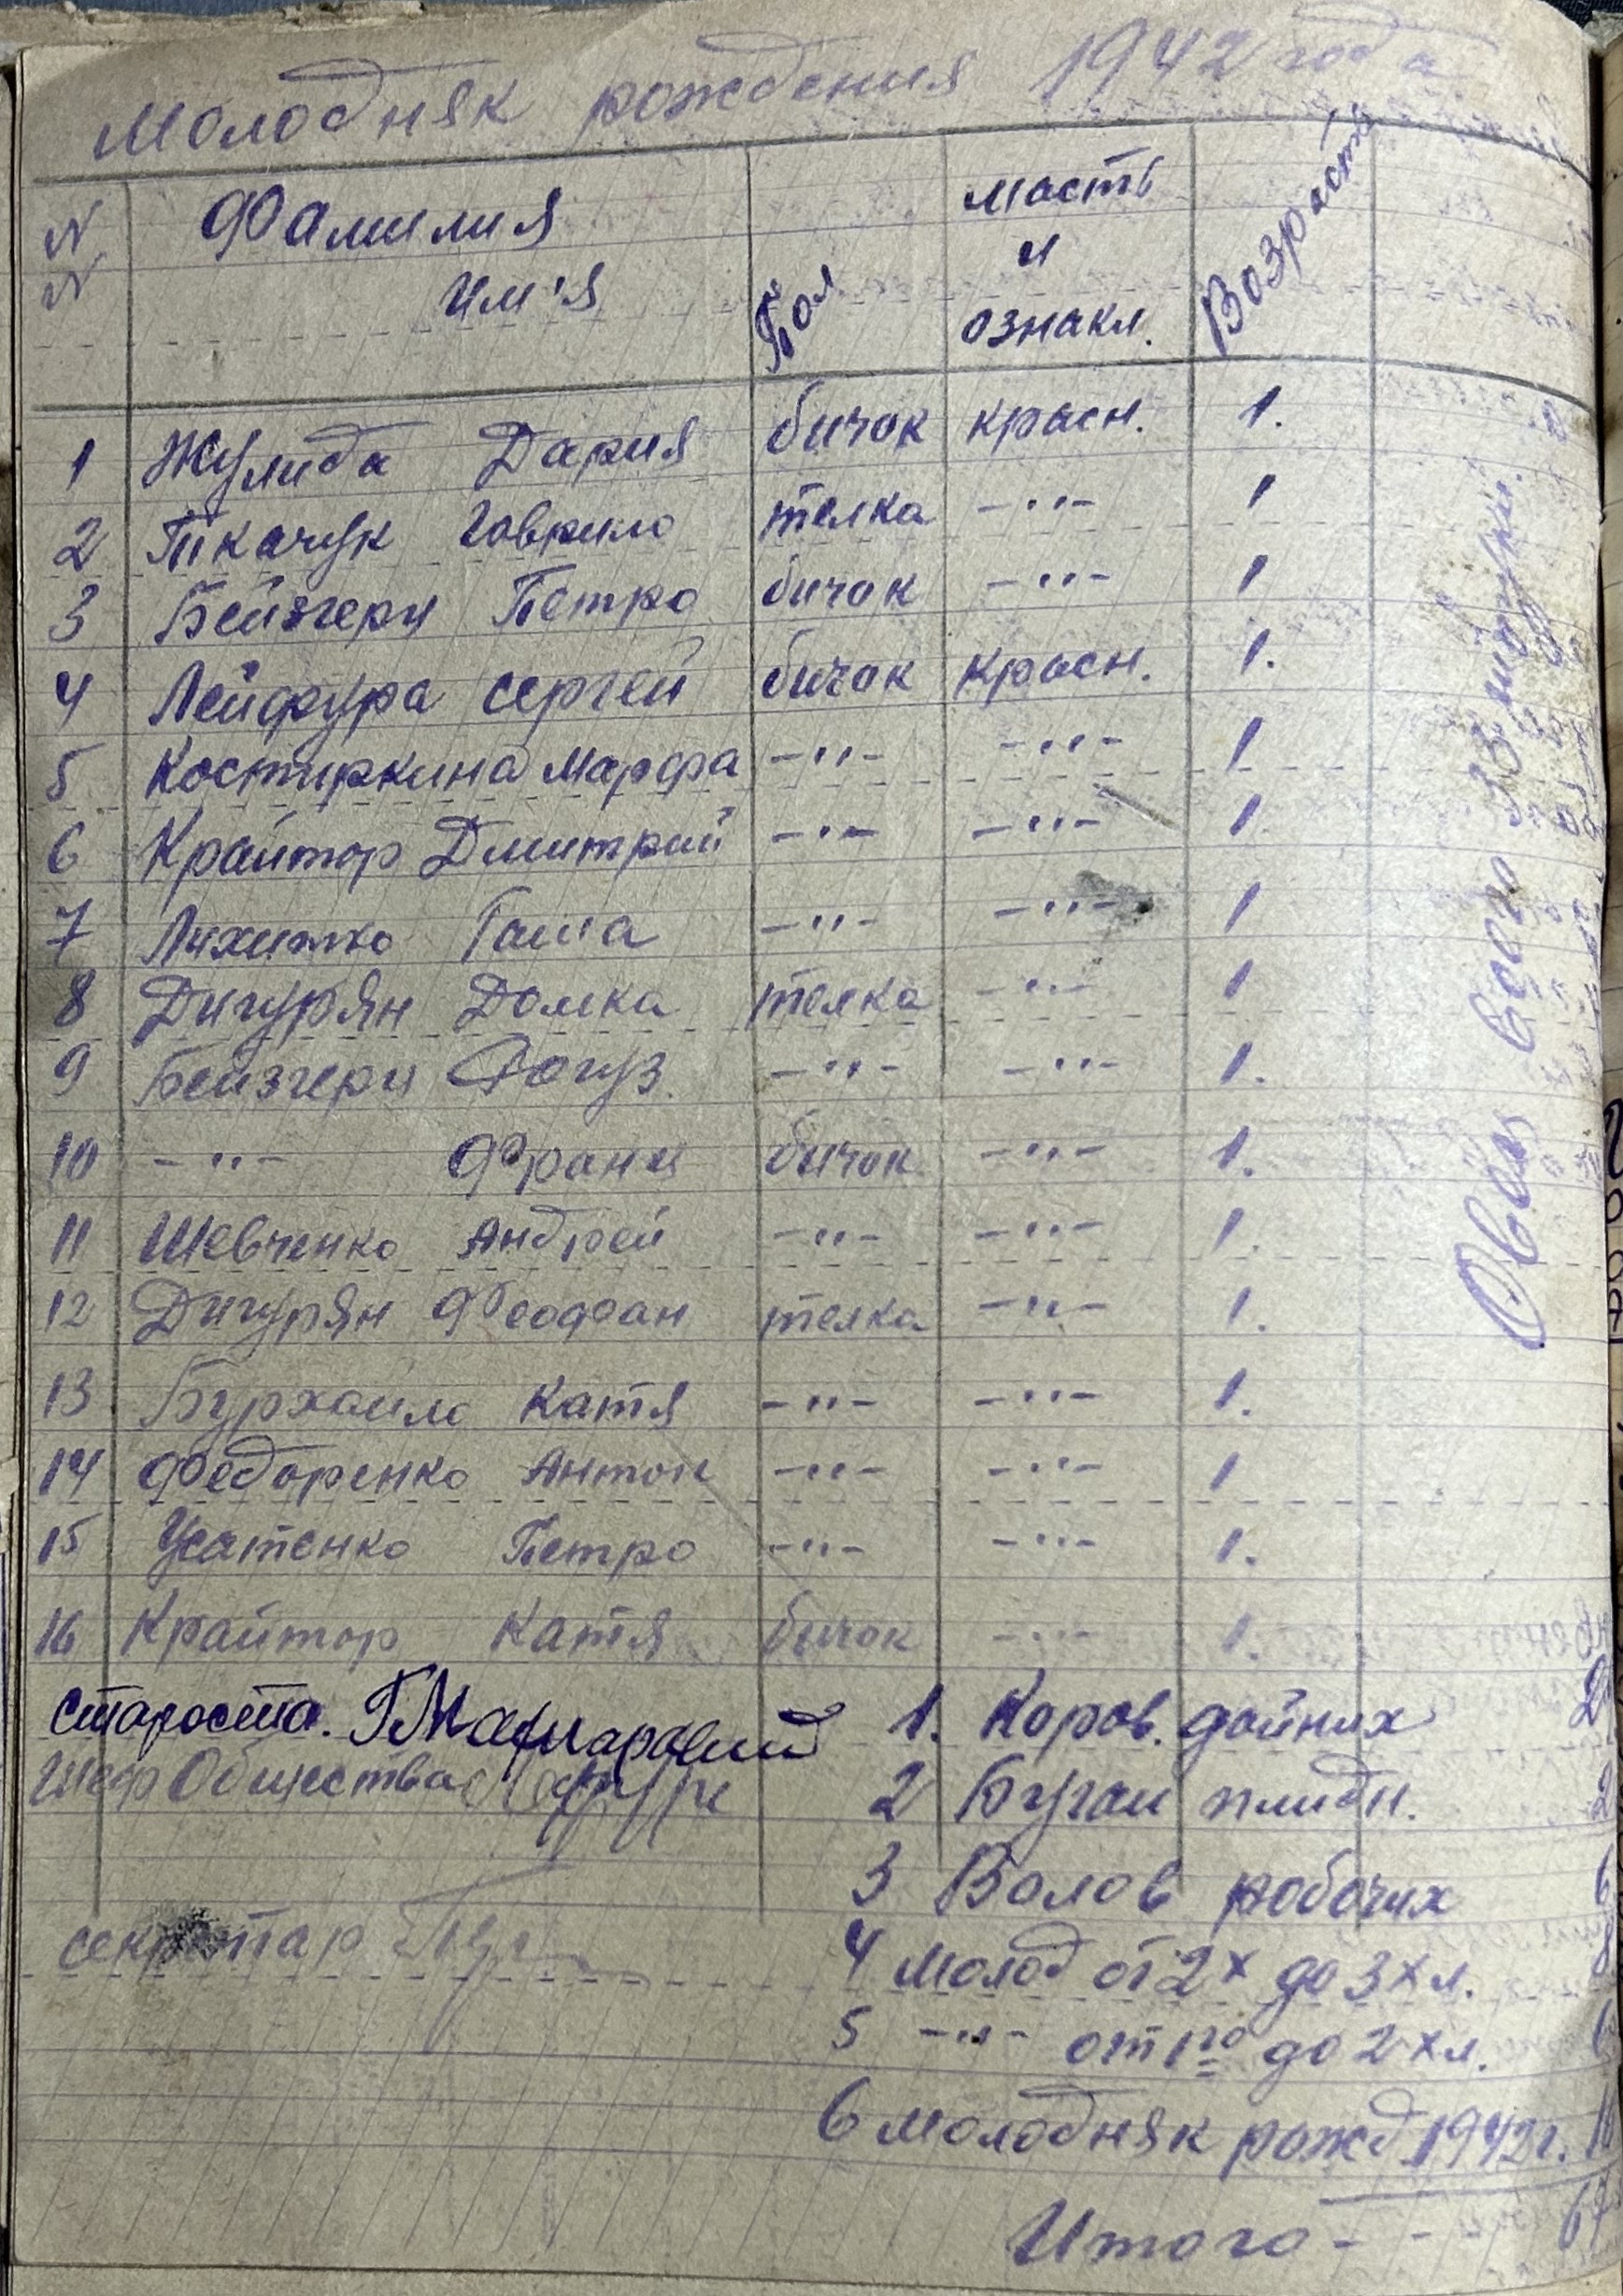 Молодняк рождения 1942 года
N N Фамилия Им'я Пол масть и ознакл. Возраст
1 Жулида Дария бичок красн. 1.
2 Ткачук Говрило телка -"- 1
3 Бейзгери Петро бичок -"- 1
4 Лейфура Сергей бичок красн. 1.
5 Костиркина Марфа -"- -"- 1
6 Крайтор Дмитрий -"- -"- 1.
7 Лихитко Гаша -"- -"- 1
8 Дигурян Домка телка -"- 1
9 Бейзгери -"- -"- 1.
10 -"- Франц бичок -"- 1.
11 Шевченко Андрей -"- -"- 1.
12 Дигурян Феофан телка -"- 1.
13 Бурхаило Катя -"- -"- 1.
14 Федоренко Антон -"- -"- 1
15 Усатенко Петро -"- -"- 1.
16 Крайтор Катя бичок -"- 1.
Староста.
Шеф Общества
секретар
1. Коров. дойних
2 Бугаи плидн. 2
3 Волов робочих 6
4 Молод от 2х до 3х л. 8
5 -"- от 1го до 2х л.
6 молодняк рожд 1942 г.
Итого - -
Овец всего 33 штуки.